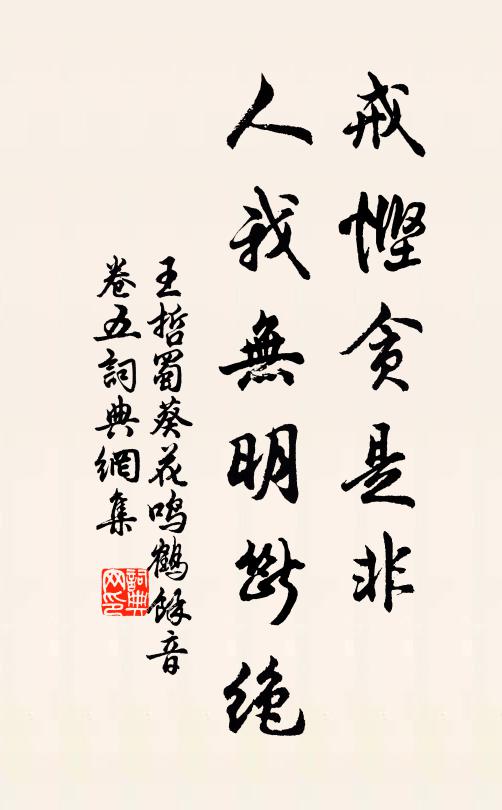 戒慳贪是非
人我無明断绝
王哲蜀葵花鸣鶴餘音
卷五詞典網集
詞典网印